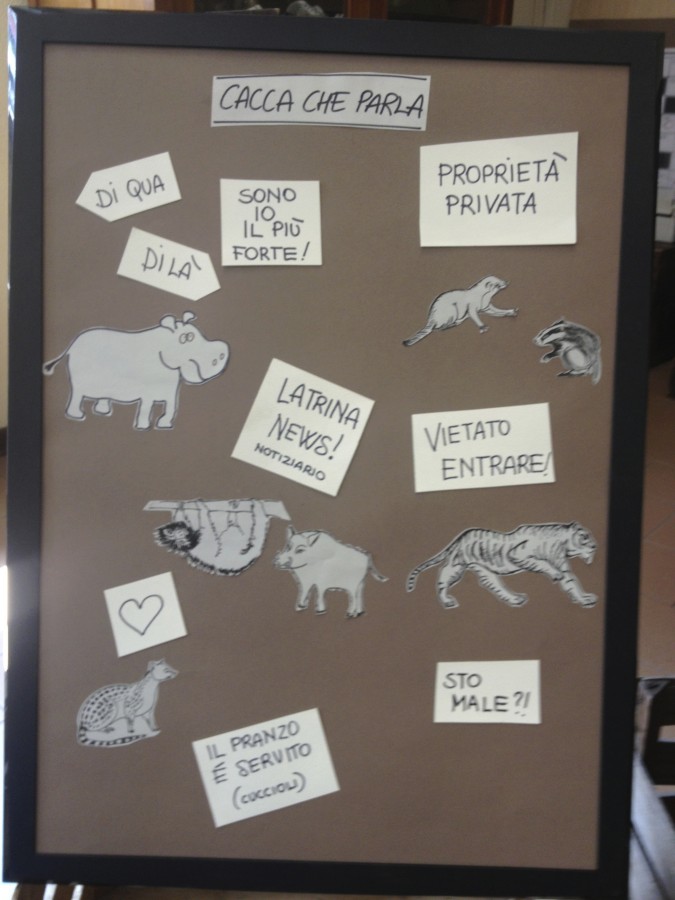 CACCA CHE PARLA
DI QUA
DI LÀ
SONO
IO
IL PIÙ
FORTE!
PROPRIETÀ
PRIVATA
LATRINA
NEWS!
NOTIZIARIO
VIETATO
ENTRARE!
STO
MALE?!
IL PRANZO
È SERVITO
(CUCCIOLI)